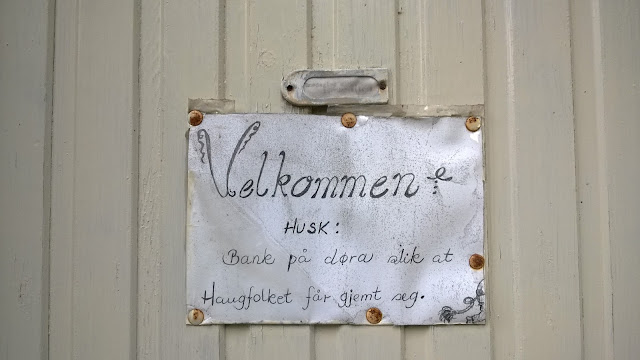 Velkommen
HUSK:
Bank på døra slik at
Haugfolket får gjemt seg.